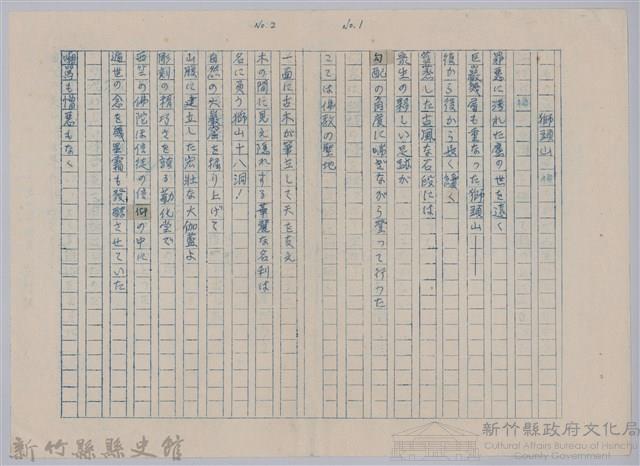 No.1
No.2
獅頭山
罪悪に濡れた塵の世を遠く
巨巌幾層も重なった獅頭山──
後から後から長く緩く
苔蒸した古風な石段には
衆生の弱しい足跡が
勾配の角度に喘ぎながら登って行った
こゝは佛教の聖地
一面に古木が筆立して天を支え
木の間に見え隠れする華麗な名刹は
名に負う獅山十八洞!
自然の大巌窟を掘り上げて
山腹に建立した宏壮な大伽藍よ
彫刻の精巧さを誇る勸化堂で
西竺の佛陀は信徒の信仰の中に
遁世の念を幾星霜も發酵させていた
嘲罵も憎悪もなく
新竹縣縣史館
新竹縣政府文化局
Cultural Affairs Bureau of Hsinchu
County Government